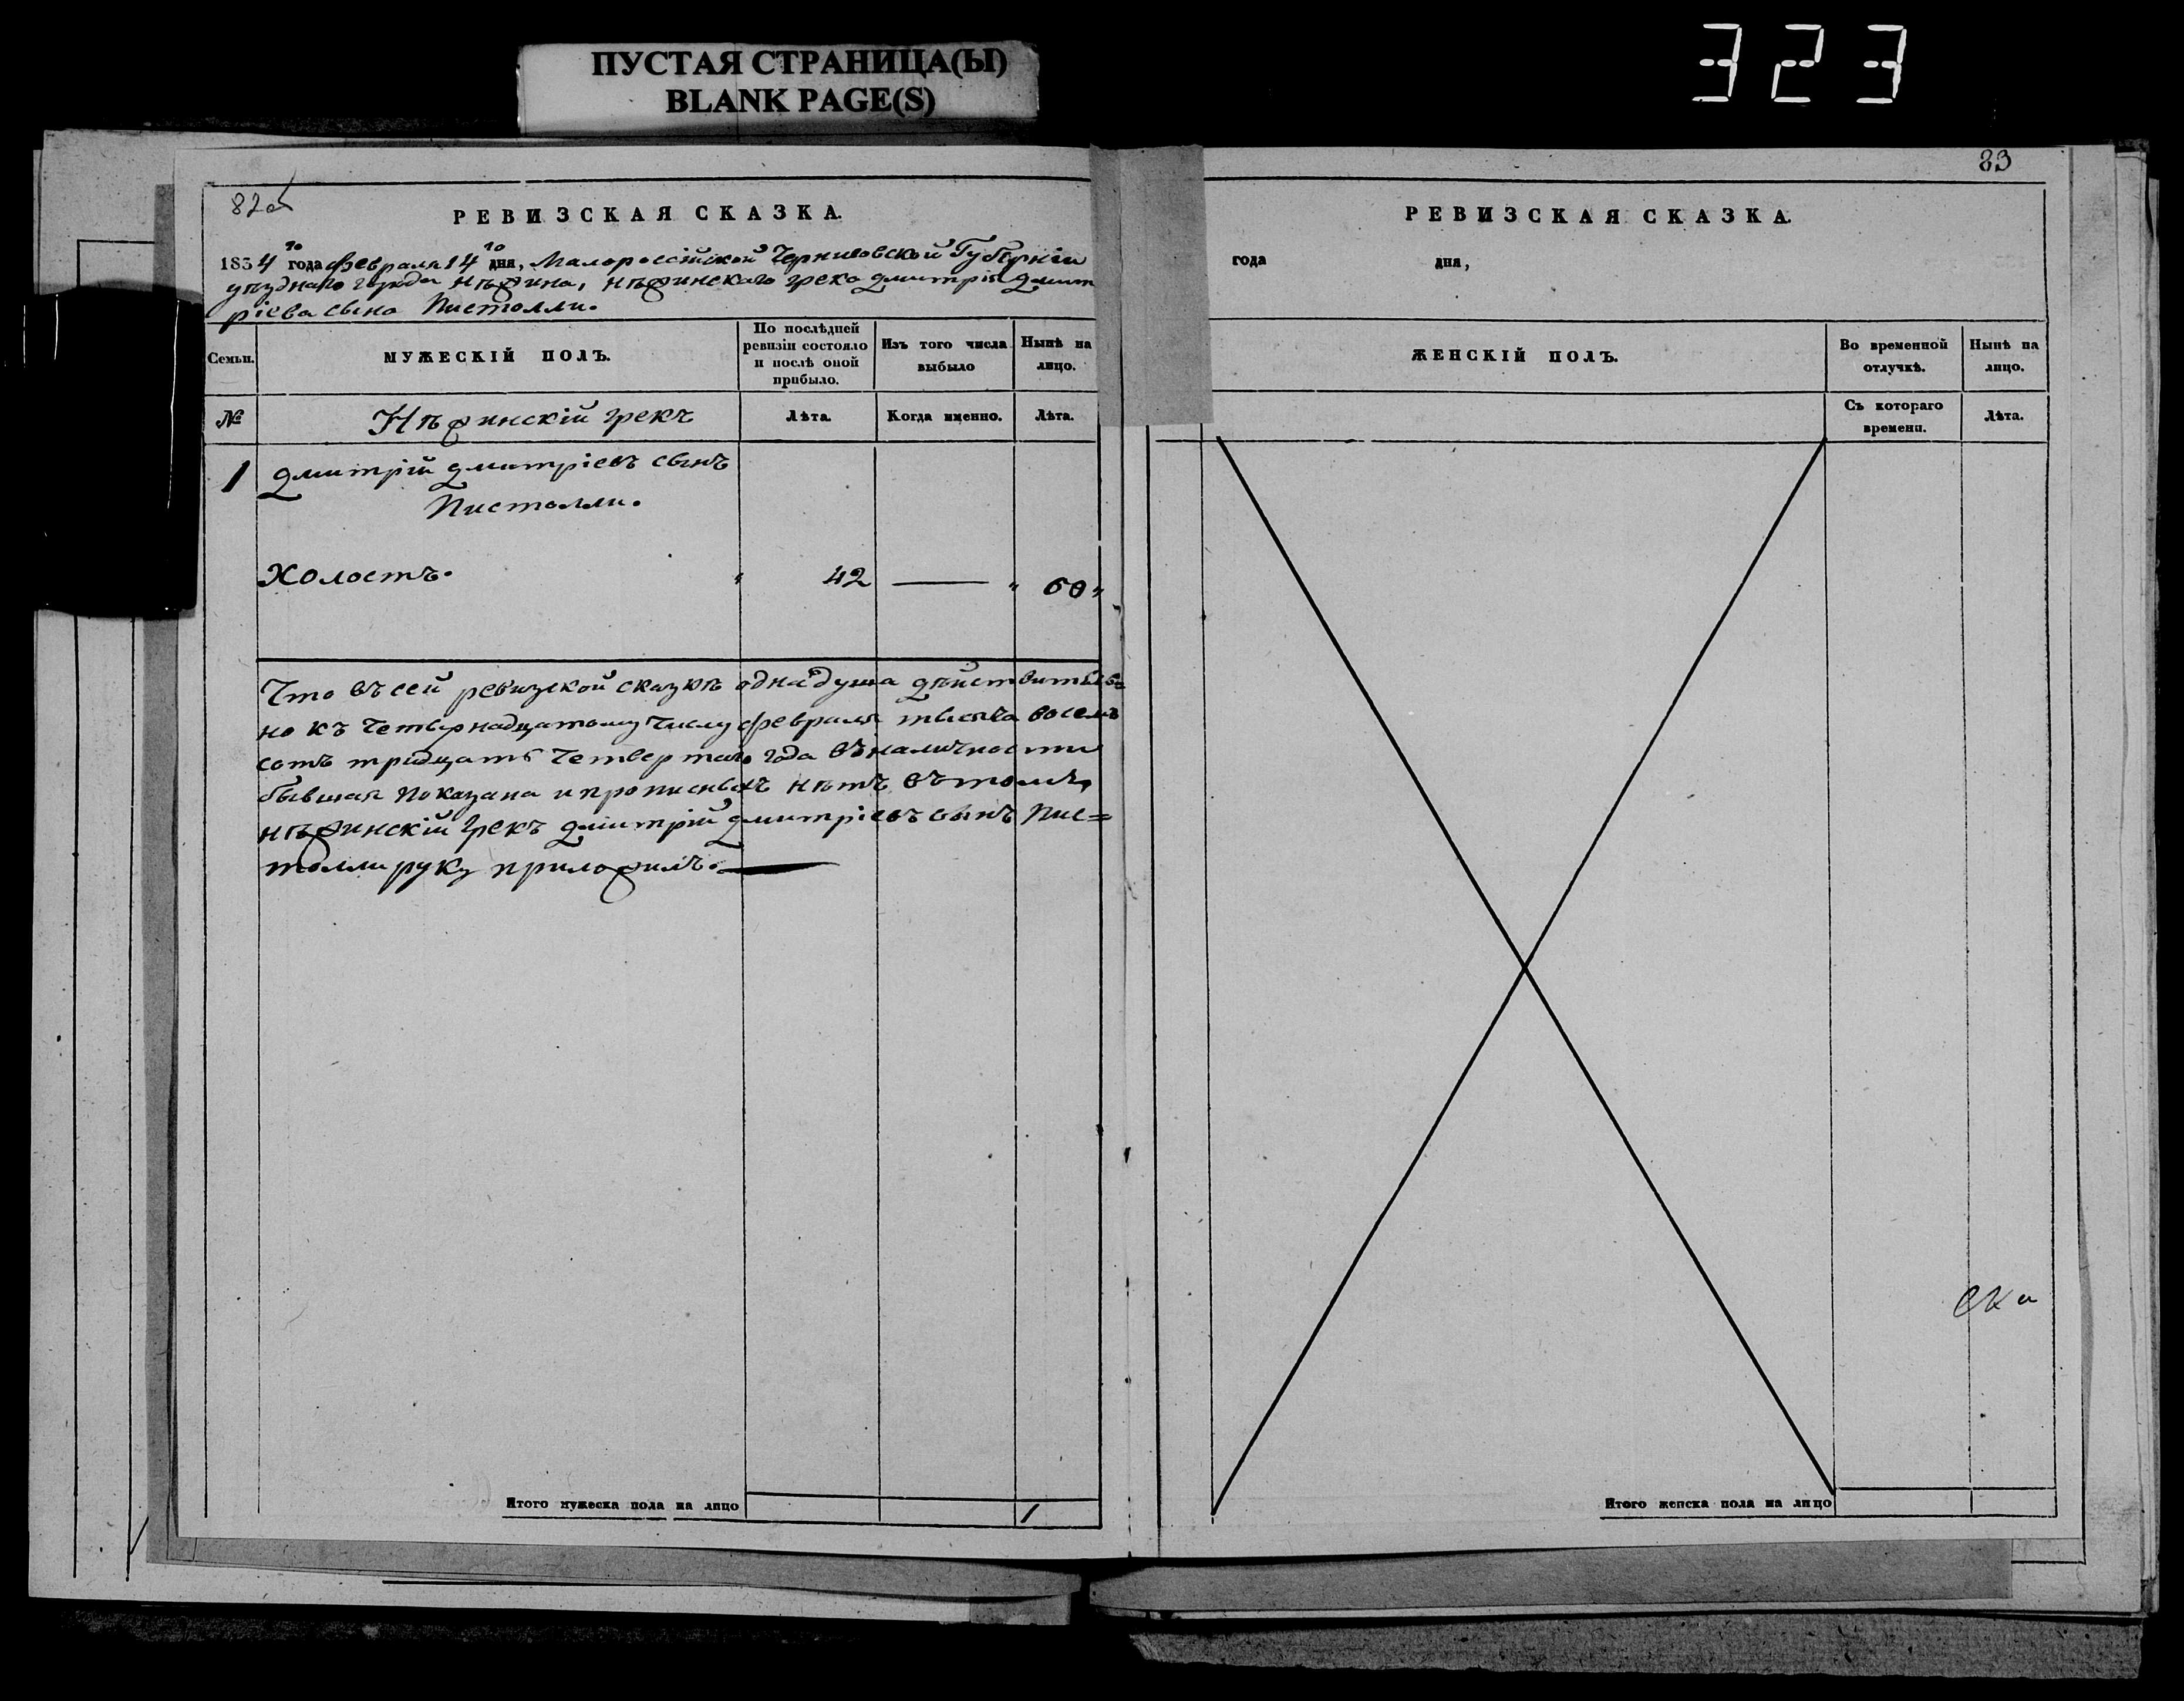 ПУСТАЯ СТРАНИЦА(Ы)
BLANK PAGE(S)
323
82об
РЕВИЗСКАЯ СКАЗКА.
1834го года февраля 14го дня, Малороссійской Черниговской Губерніи
уѣзднаго города Нѣжина, нѣжинскаго грека Дмитрія Дмит
ріева сына Пистолли.
Семьи.
МУЖЕСКІЙ ПОЛЪ.
По послѣдней
ревизіи состояло
и послѣ оной
прибыло.
Изъ того числа
выбыло
Нынѣ на
лицо.
№
Нѣжинскій грекъ
Лѣта.
Когда именно.
Лѣта.
1
Дмитрій Дмитріевъ сынъ
Пистолли.
Холостъ.
42
—
60
Что въ сей ревизской сказкѣ одна душа дѣйствитель
но къ четвернадцатому числу февраля тысяча восемъ
сотъ тридцать четвертаго года въ наличности
бывшая показана и прописныхъ нѣтъ въ томъ,
нѣжинскій грекъ Дмитрій Дмитріевъ сынъ Пис=
толли руку приложилъ.
Итого мужеска пола на лицо
1
83
РЕВИЗСКАЯ СКАЗКА.
года
дня,
ЖЕНСКІЙ ПОЛЪ.
Во временной
отлучкѣ.
Нынѣ на
лицо.
Съ котораго
времени.
Лѣта.
Итого женска пола на лицо